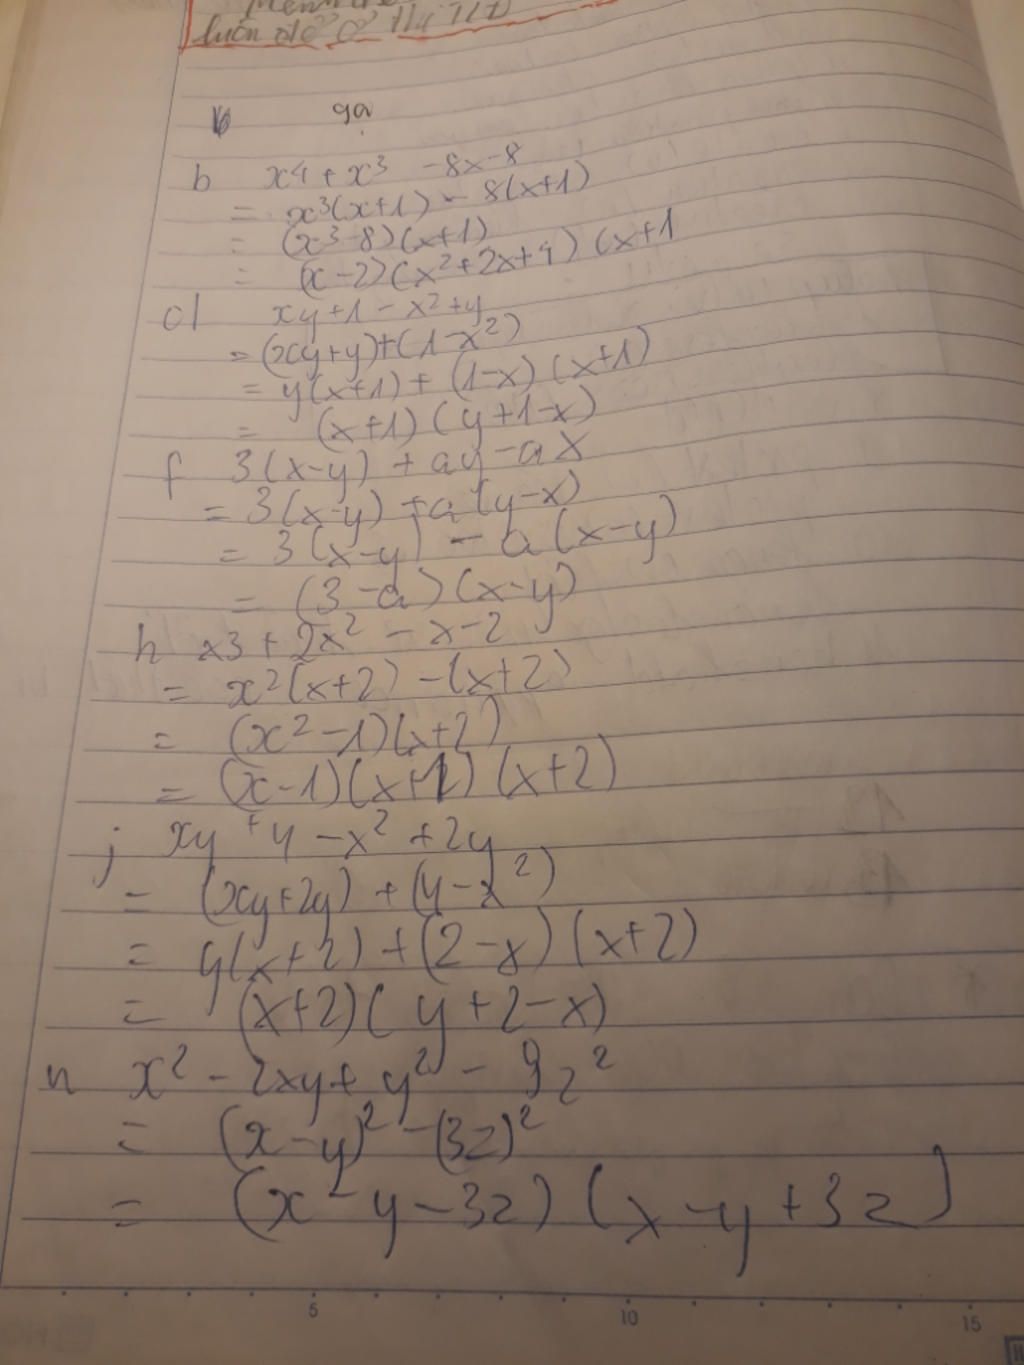 luôn
ga
b x⁴ + x³ - 8x - 8
= x³(x+1) - 8(x+1)
= (x³-8)(x+1)
= (x-2)(x²+2x+4)(x+1
d xy+1-x²+y
= (xy+y)+(1-x²)
= y(x+1) + (1-x)(x+1)
= (x+1)(y+1-x)
f 3(x-y) + ay - ax
= 3(x-y) + a(y-x)
= 3(x-y) - a(x-y)
= (3-a)(x-y)
h x3 + 2x² - x - 2
= x²(x+2) - (x+2)
= (x²-1)(x+2)
= (x-1)(x+1)(x+2)
j xy + 4 - x² + 2y
= (xy+2y) + (4-x²)
= y(x+2) + (2-x)(x+2)
= (x+2)(y+2-x)
n x² - 2xy + y² - 9z²
= (x-y)² - (3z)²
= (x-y-3z)(x-y+3z)
5 10 15